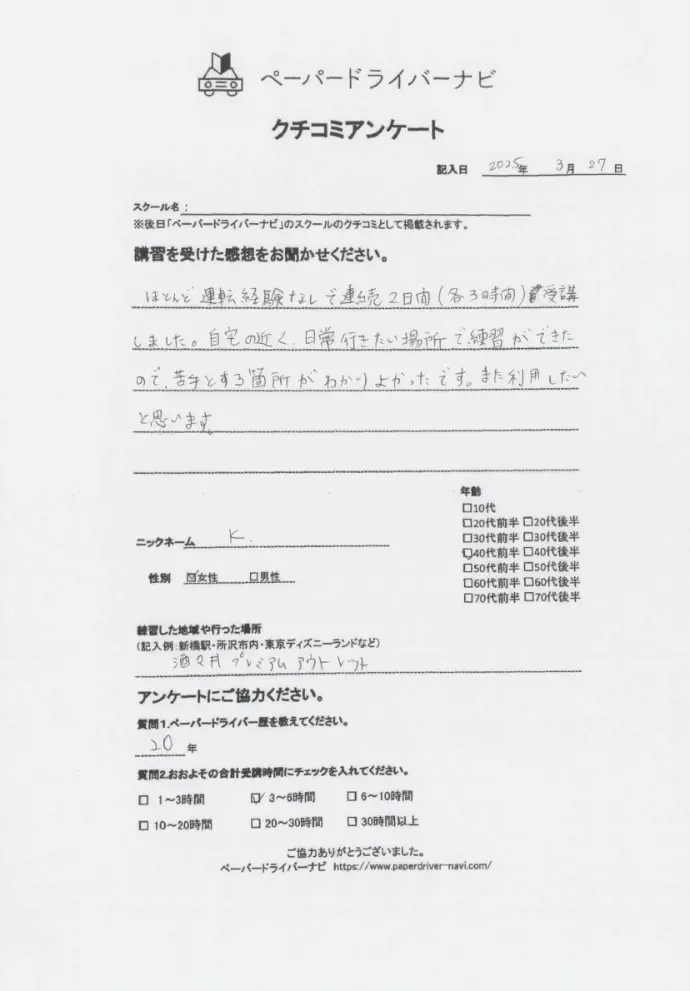 ペーパードライバーナビ
クチコミアンケート
記入日 2025年 3月 27日
スクール名:
※後日「ペーパードライバーナビ」のスクールのクチコミとして掲載されます。
講習を受けた感想をお聞かせください。
ほとんど運転経験なしで連続2日間(各3時間)受講
しました。自宅の近く、日常行きたい場所で練習ができた
ので、苦手とする箇所がわかりよかったです。また利用したい
と思います。
年齢
□10代
□20代前半 □20代後半
□30代前半 □30代後半
☑40代前半 □40代後半
□50代前半 □50代後半
□60代前半 □60代後半
□70代前半 □70代後半
ニックネーム K.
性別 ☑女性 □男性
練習した地域や行った場所
(記入例:新橋駅・所沢市内・東京ディズニーランドなど)
酒々井プレミアムアウトレット
アンケートにご協力ください。
質問1.ペーパードライバー歴を教えてください。
20年
質問2.おおよその合計受講時間にチェックを入れてください。
□ 1～3時間 ☑ 3～6時間 □ 6～10時間
□ 10～20時間 □ 20～30時間 □ 30時間以上
ご協力ありがとうございました。
ペーパードライバーナビ https://www.paperdriver-navi.com/